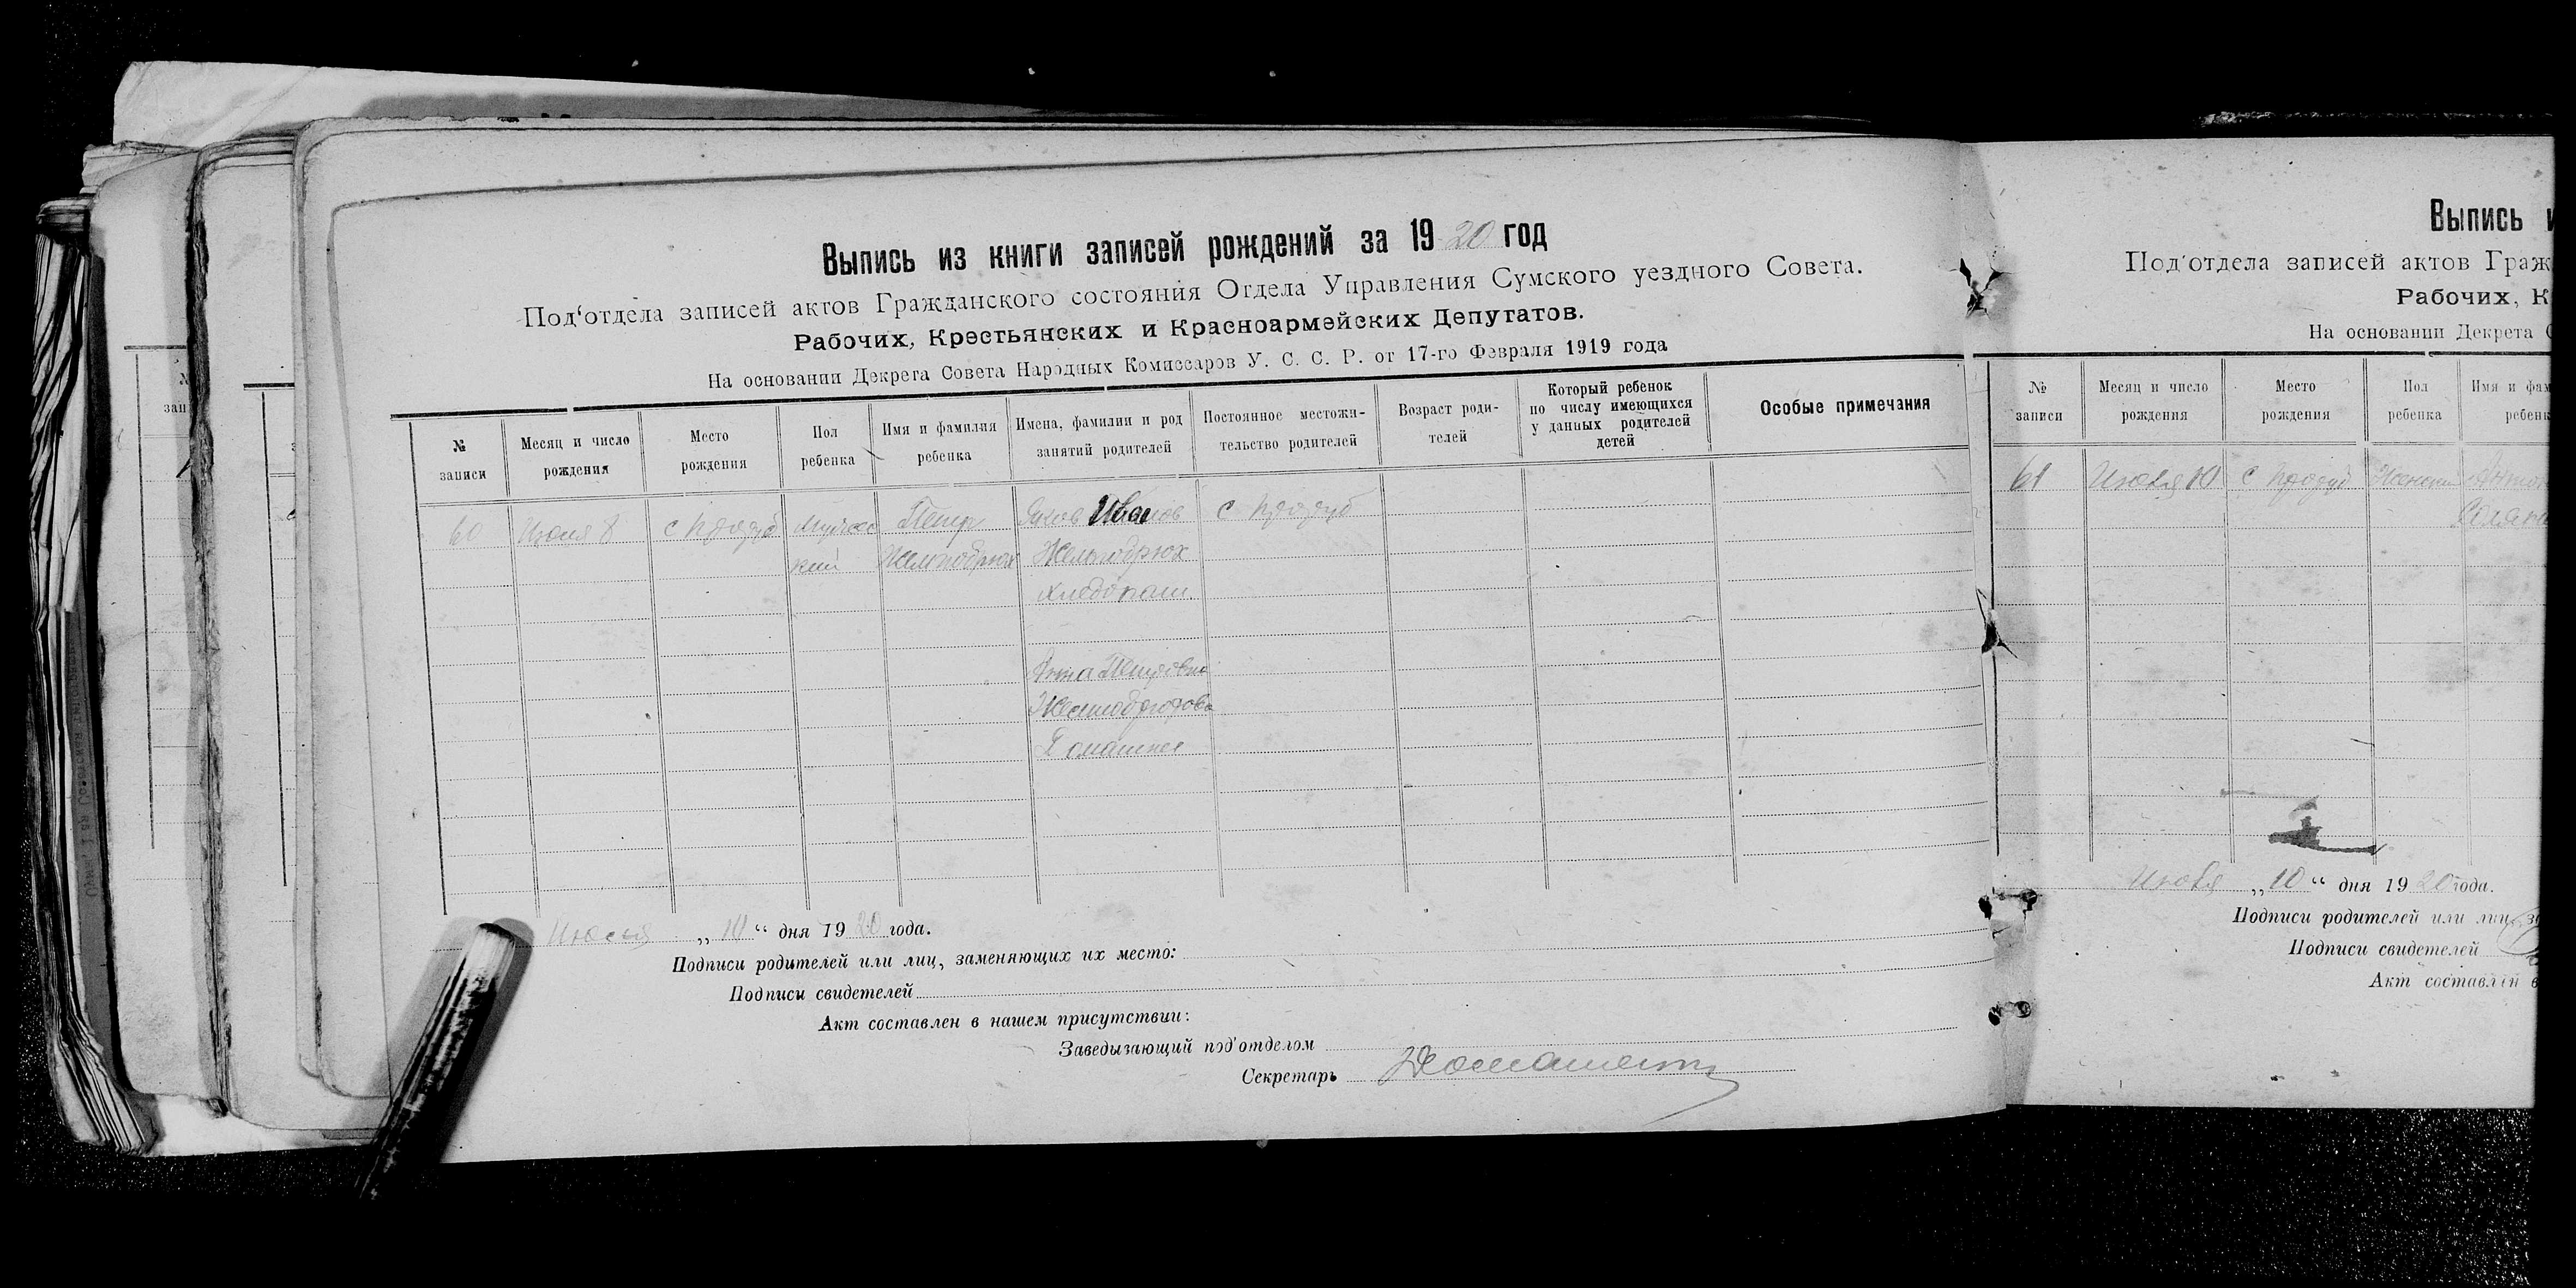 Выпись из книги записей рождений за 1920 год
Под‘отдела записей актов Гражданского состояния Отдела Управления Сумского уездного Совета.
Рабочих, Крестьянских и Красноармейских Депутатов.
На основании Декрета Совета Народных Комиссаров У. С. С. Р. от 17-го Февраля 1919 года
№ записи
Месяц и число рождения
Место рождения
Пол ребенка
Имя и фамилия ребенка
Имена, фамилии и род занятий родителей
Постоянное местожительство родителей
Возраст родителей
Который ребенок по числу имеющихся у данных родителей детей
Особые примечания
60
8
с
Мужес
кий
Петр
Желтобрюх
Яков Иванов
Желтобрюх
хлебопаш.
Анна Петровна
Желтобрюхова
Домашнее
с
„10“ дня 1920 года.
Подписи родителей или лиц, заменяющих их место:
Подписи свидетелей
Акт составлен в нашем присутствии:
Заведызающий под'отделом
Секретарь
Выпись и
Под'отдела записей актов Граж
Рабочих, К
На основании Декрета С
№ записи
Месяц и число рождения
Место рождения
Пол ребенка
Имя и фам
ребенк
61
10
с
Женский
„10“ дня 1920 года.
Подписи родителей или лиц, з
Подписи свидетелей
Акт составлен в